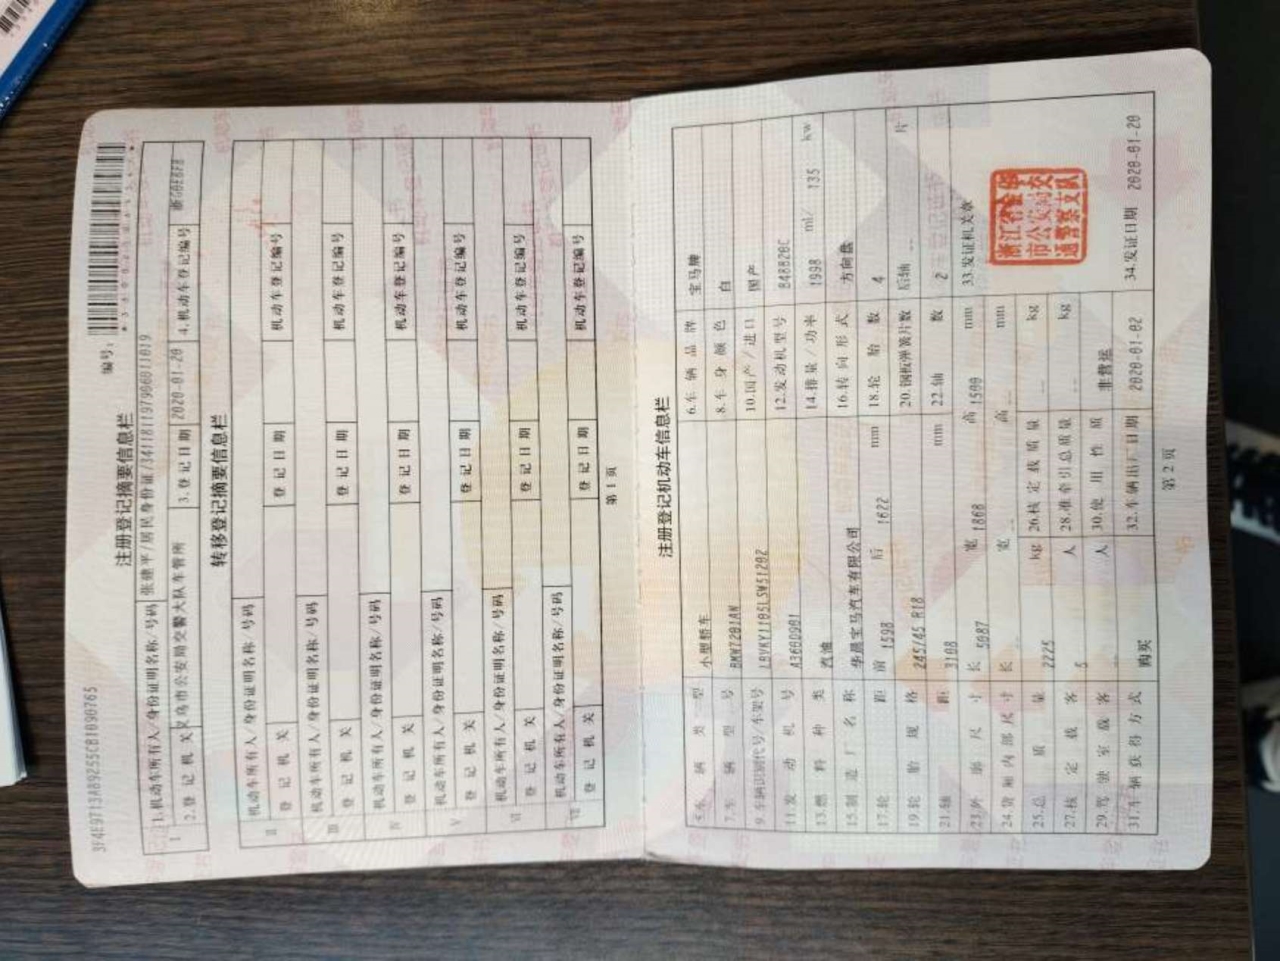 3F4E9713AB9255CB1890765
编号：
注册登记摘要信息栏
1.机动车所有人/身份证明名称/号码 张建平/居民身份证/341181197906011019
I 2.登记机关 义乌市公安局交警大队车管所 3.登记日期 2020-01-20 4.机动车登记编号
转移登记摘要信息栏
机动车所有人/身份证明名称/号码
II 登记机关 登记日期 机动车登记编号
机动车所有人/身份证明名称/号码
III 登记机关 登记日期 机动车登记编号
机动车所有人/身份证明名称/号码
IV 登记机关 登记日期 机动车登记编号
机动车所有人/身份证明名称/号码
V 登记机关 登记日期 机动车登记编号
机动车所有人/身份证明名称/号码
VI 登记机关 登记日期 机动车登记编号
机动车所有人/身份证明名称/号码
VII 登记机关 登记日期 机动车登记编号
第1页
注册登记机动车信息栏
5.车辆类型 小型轿车 6.车辆品牌 宝马牌
7.车辆型号 BMW7201AN 8.车身颜色 白
9.车辆识别代号/车架号 LBVKY1105LSW51202 10.国产/进口 国产
11.发动机号 A3660981 12.发动机型号 B48B20C
13.燃料种类 汽油 14.排量/功率 1998 ml/ 135 kw
15.制造厂名称 华晨宝马汽车有限公司 16.转向形式 方向盘
17.轮距 前 1598 后 1622 mm 18.轮胎数 4
19.轮胎规格 245/45 R18 20.钢板弹簧片数 后轴 片
21.轴距 3108 mm 22.轴数 2
23.外廓尺寸 长 5087 宽 1868 高 1500 mm 33.发证机关章
24.货厢内部尺寸 长 宽 高 mm
25.总质量 2225 kg 26.核定载质量 kg
27.核定载客 5 人 28.准牵引总质量 kg
29.驾驶室载客 人 30.使用性质 非营运
31.车辆获得方式 购买 32.车辆出厂日期 2020-01-02 34.发证日期 2020-01-20
浙江省金华
市公安局交
通警察支队
第2页